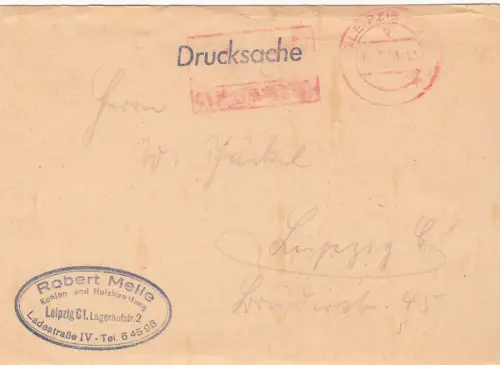 Drucksache
LEIPZIG
Herrn
W. Jäckel
Leipzig C1
Brüderstr. 45
Robert Melle
Kohlen und Holzhandlung
Leipzig C1, Lagerhofstr. 2
Ladestraße IV · Tel. 64598